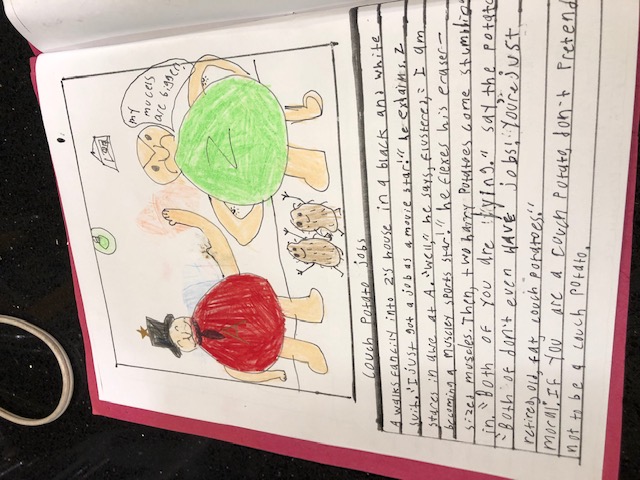 my
mucels
are bigger!
Z
couch potato jobs
A walks fancily into Z's house in a black and white
suit. "I just got a job as a movie star!" he exlaims. Z
stares in awe at A. "Well," he says, flustered, "I am
becoming a muscley sports star." he flexes his eraser-
sized muscles. Then, two harry Potatoes come stumbling
in "Both of you are lying." say the potato
"Both of don't even HAVE jobs! You're just
retired, old, fat couch potatoes."
moral: If you are a couch potato, don't pretend
not to be a couch potato.